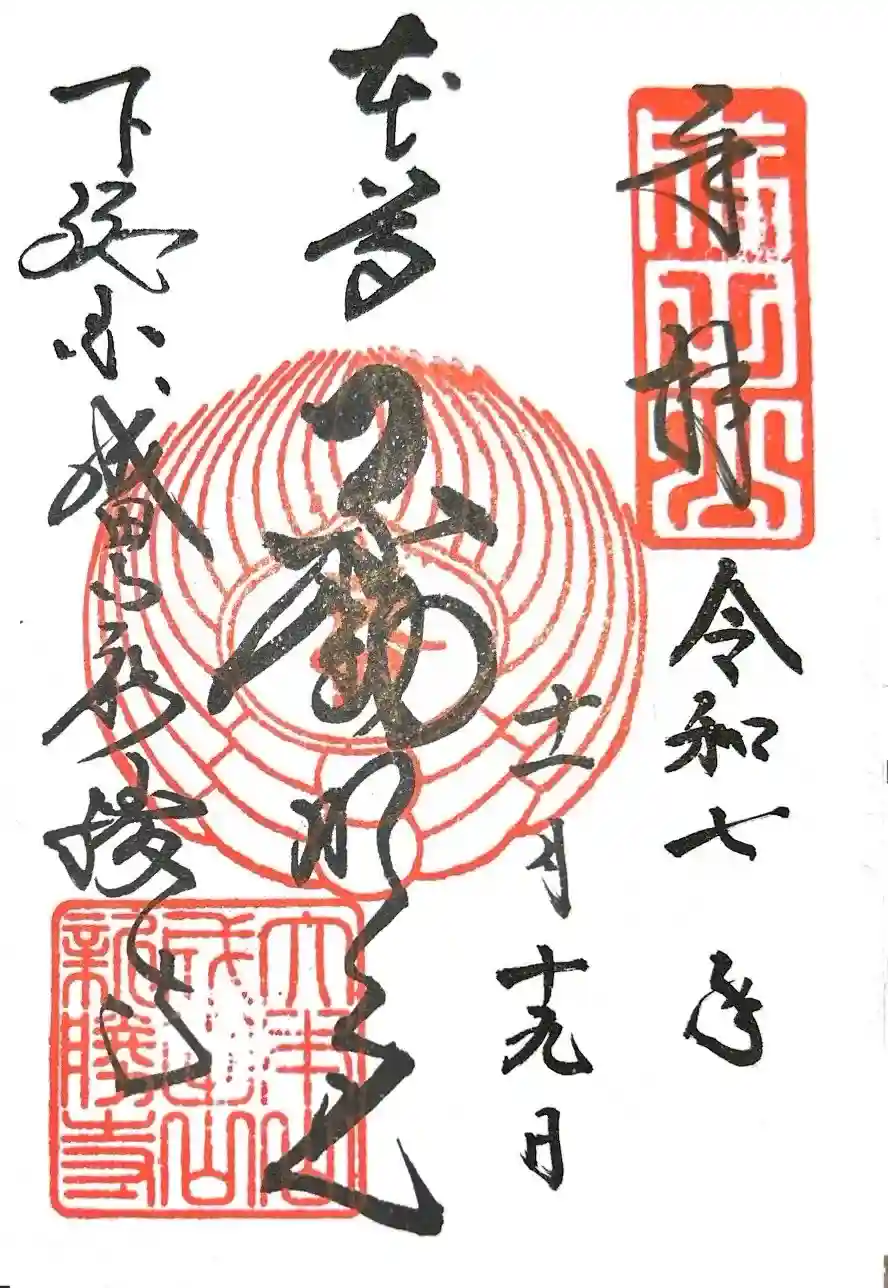 奉拝
令和七年
十一月
十九日
本尊
不動明王
下総国
成田山新勝寺
大本山
成田山
新勝寺